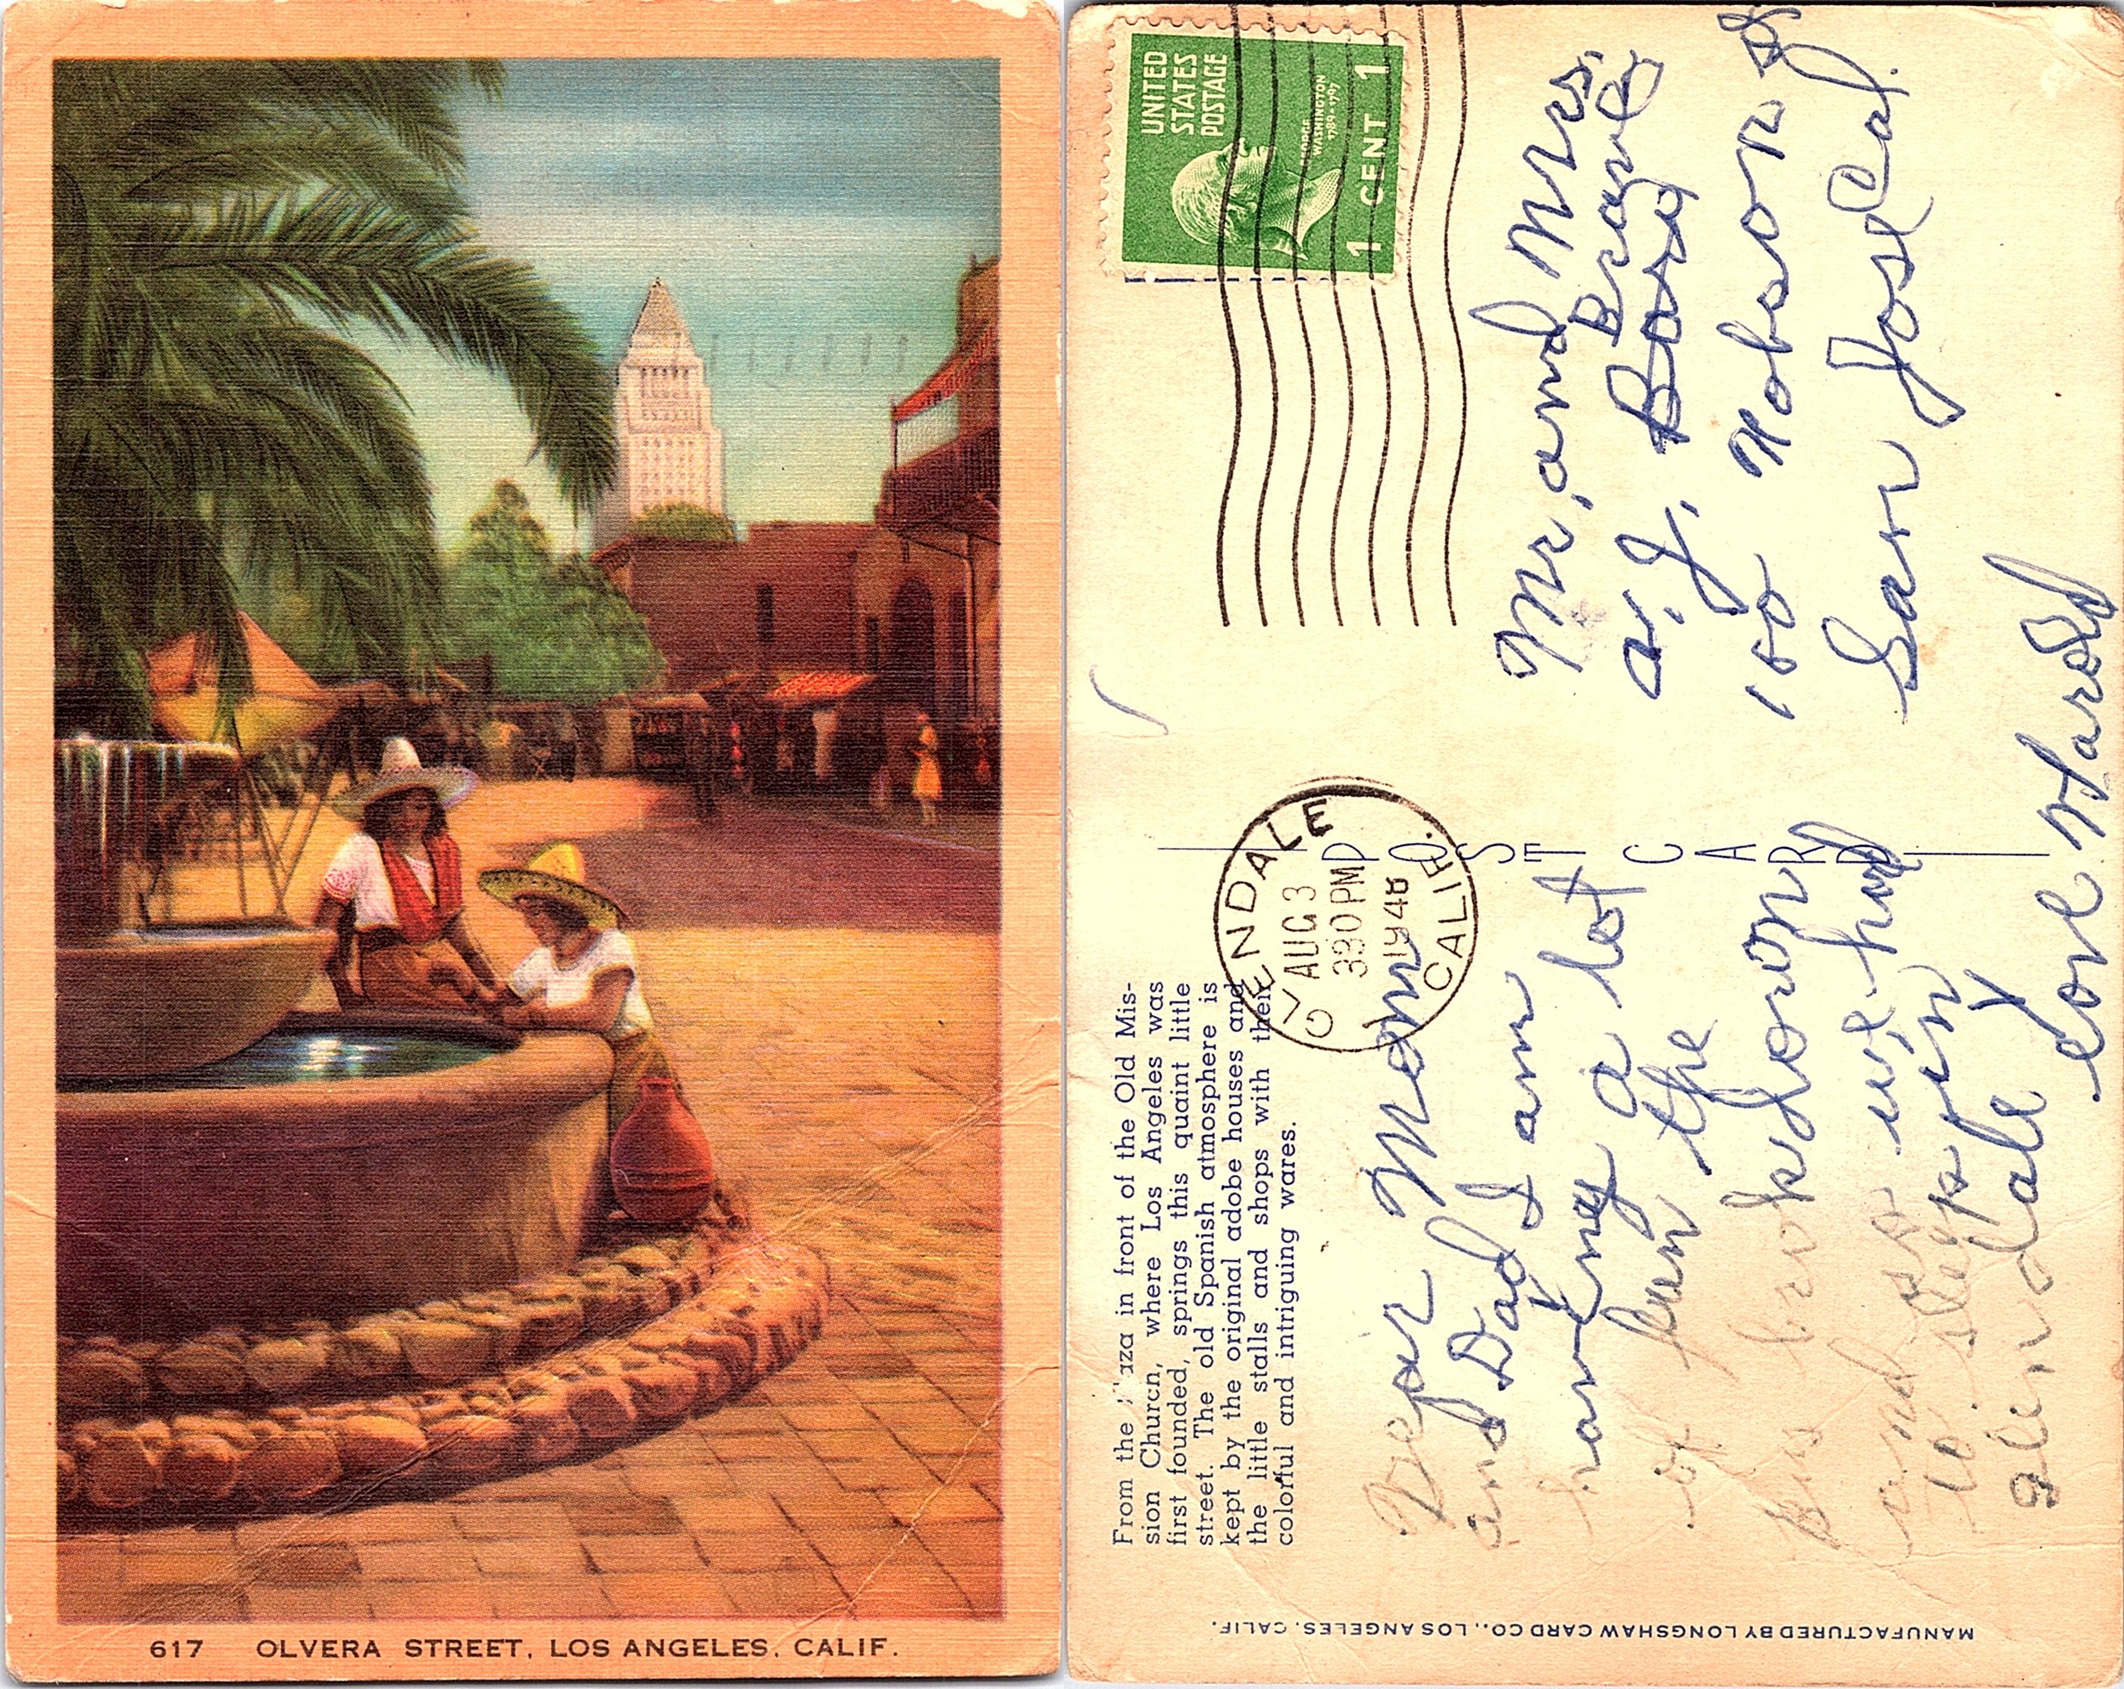 617 OLVERA STREET, LOS ANGELES, CALIF.
From the Plaza in front of the Old Mis-
sion Church, where Los Angeles was
first founded, springs this quaint little
street. The old Spanish atmosphere is
kept by the original adobe houses and
the little stalls and shops with their
colorful and intriguing wares.
POST CARD
GLENDALE
AUG 3
330 PM
1948
CALIF.
UNITED
STATES
POSTAGE
GEORGE
WASHINGTON
1789-1797
1 CENT 1
Dear Mom
and Dad I am
having a lot
of fun the
bus broke down
and so we had
to sleep in
glendale
Love Harold
Mr. and Mrs.
A. J.
100 Hobson St
San Jose Cal.
MANUFACTURED BY LONGSHAW CARD CO., LOS ANGELES, CALIF.